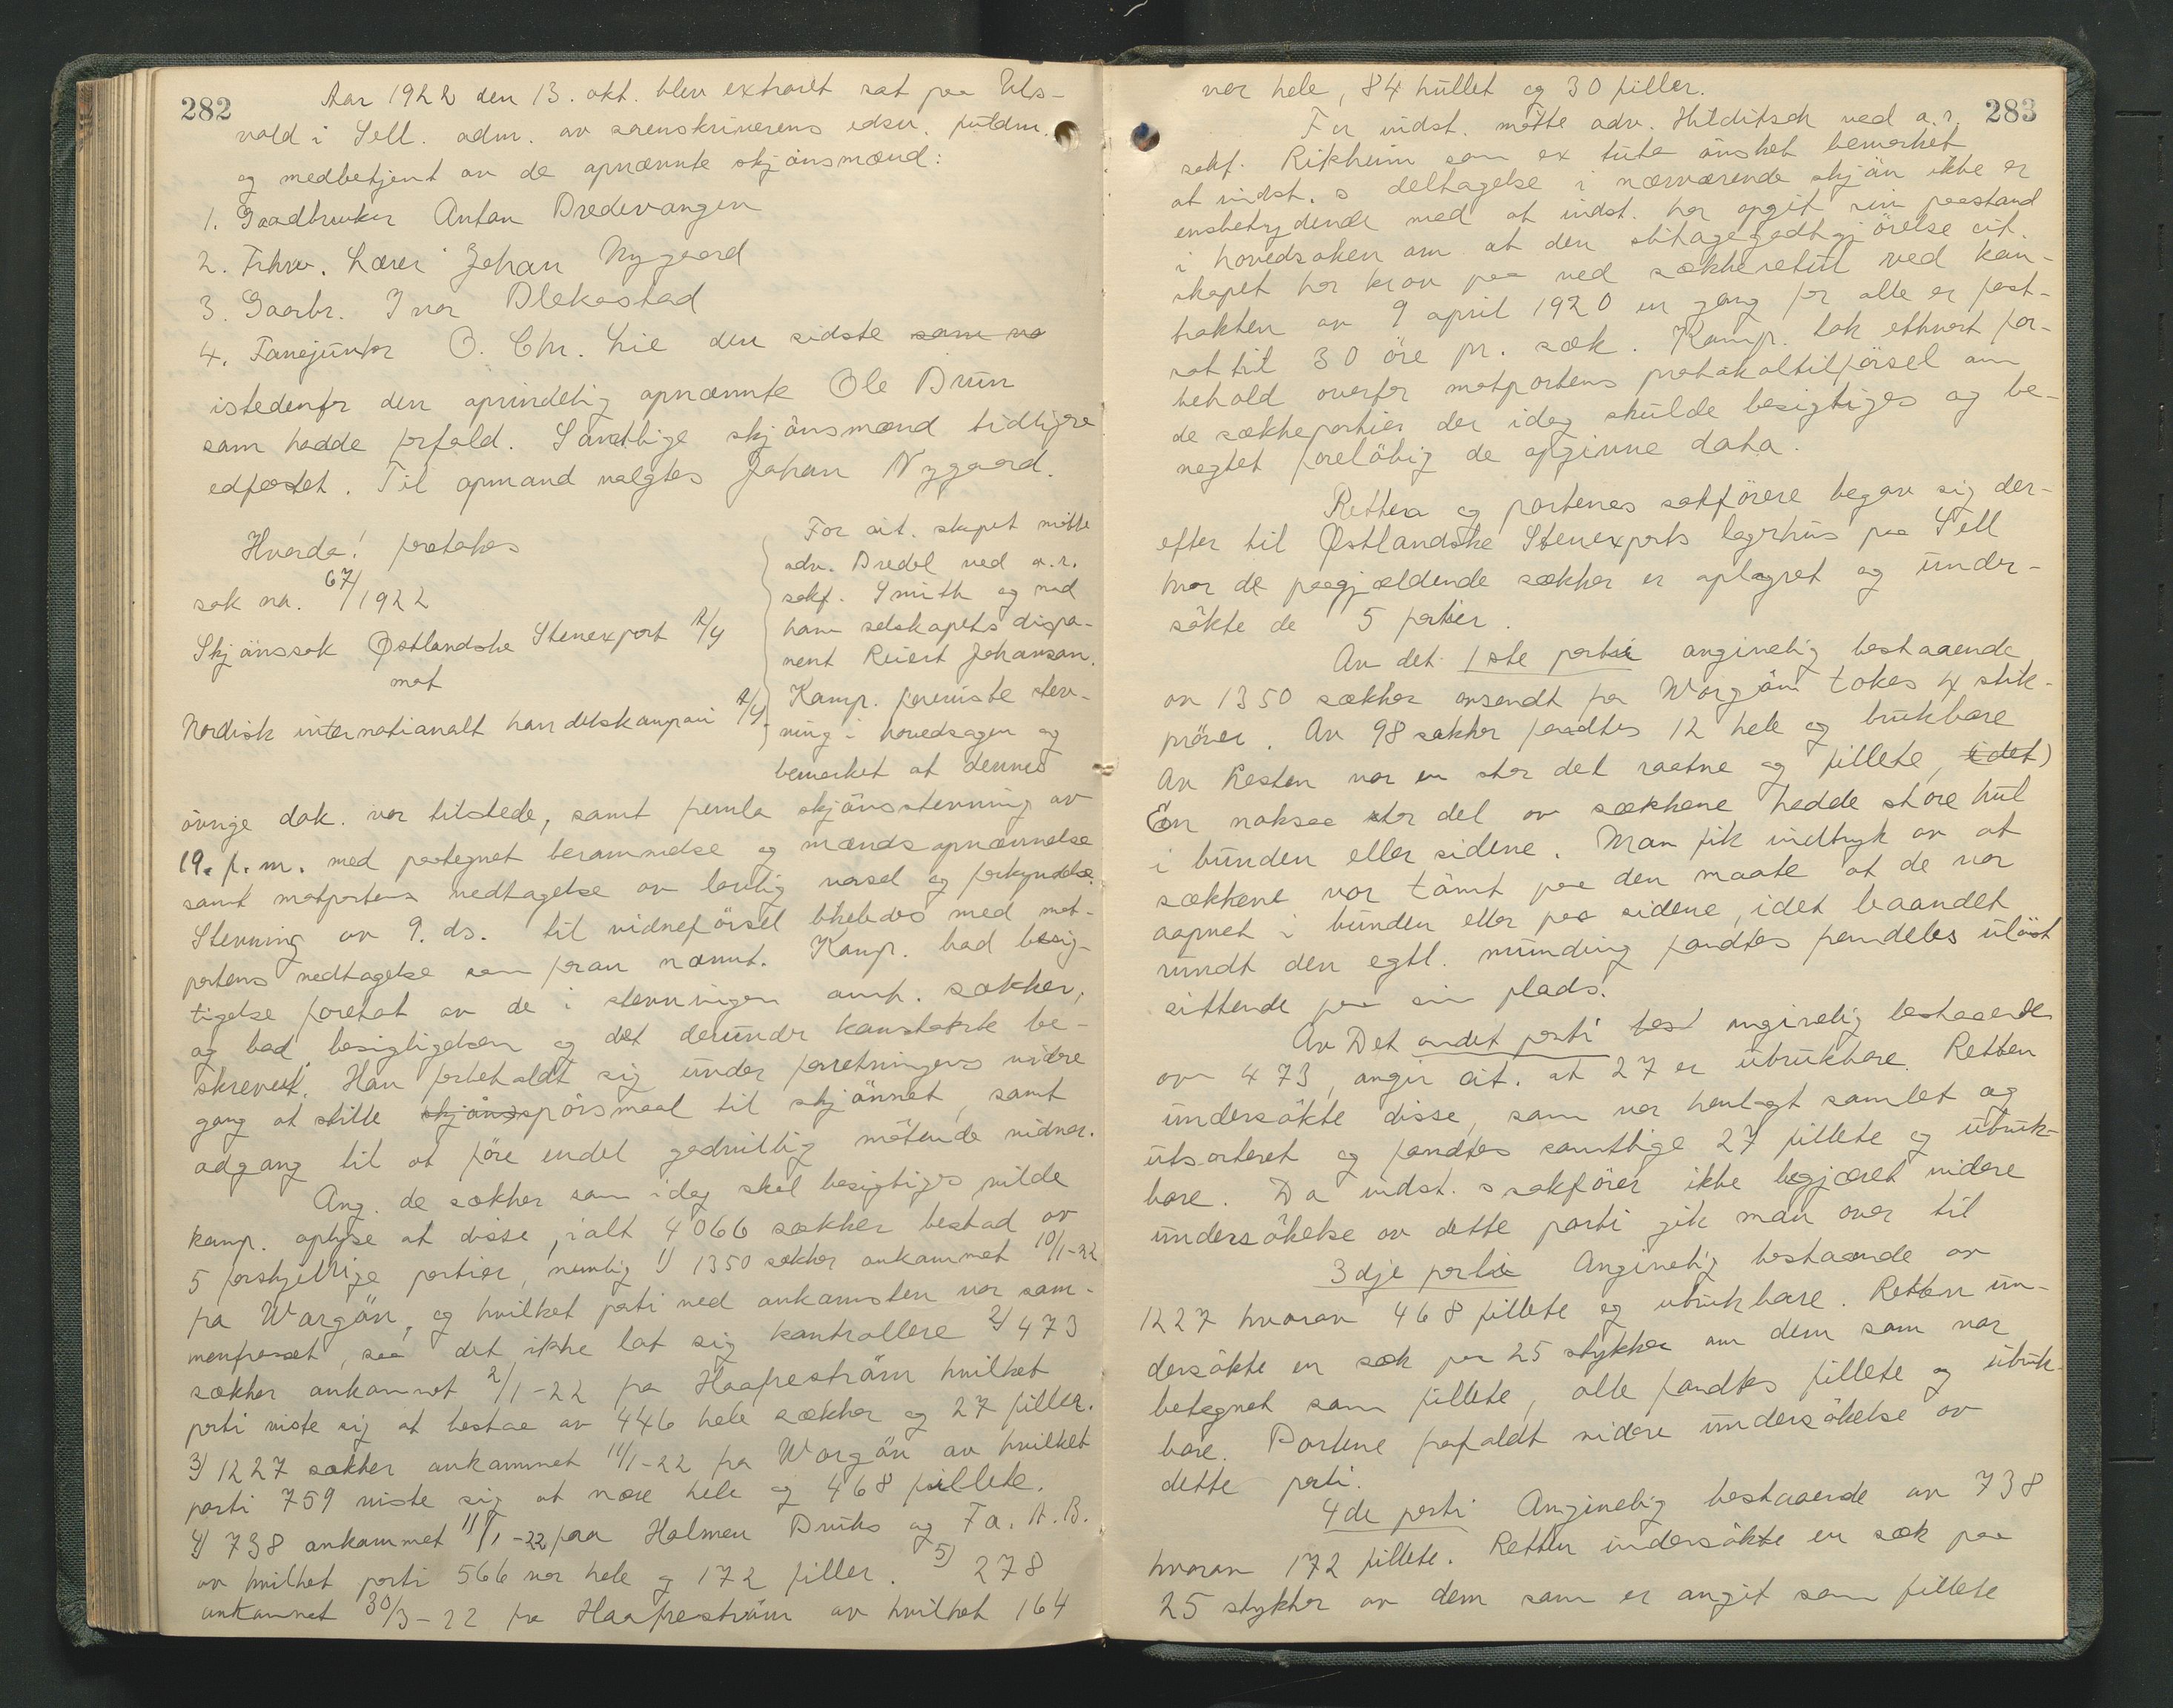 282
Aar 1922 den 13. okt. blev extraret sat paa Uls-
vold i Sell. adm. av sorenskriverens edsv. fuldm.
og medbetjent av de opnævnte skjönsmænd:
1. Gaardbruker Anton Bredevangen
2. Fhv. Lærer Johan Nygaard
3. Gaarbr. Ivar Blekastad
4. Fanejunker O. Chr. Lie den sidste som va
istedenfor den oprindelig opnævnte Ole Bruun
som hadde forfald. Samtlige skjönsmænd tidligere
edfæstet. Til opmand valgtes Johan Nygaard.
Hvorda! foretokes
sak no. 67/1922
Skjönssak Østlandske Stenexport A/S
mot
Nordisk internationalt handelskompani A/S
For cit. skapet mötte
adv. Bredal ved o.r.
sakf. Smith og med
ham selskapets dispo-
nent Reiert Johanson.
Komp. foreviste stev-
ning i hovedsagen og
bemerket at dennes
övrige dok. var tilstede, samt femla skjönsstevning av
19. f. m. med paategnet berammelse og mændsopnævnelse
samt motpartens vedtagelse av lovlig varsel og forkyndelse.
Stevning av 9. ds. til vidneförsel likeledes med mot-
partens vedtagelse som foran nævnt. Komp. bad besig-
tigelse foretat av de i stevningen omh. sækker,
og bad besigtigelsen og det derunder konstaterte be-
skrevet. Han forbeholdt sig under forretningens videre
gang at stille skjöns spörsmaal til skjönnet, samt
adgang til at före endel godvillig mötende vidner.
Ang. de sækker som idag skal besigtiges vilde
komp. oplyse at disse, ialt 4066 sækker bestod av
5 forskjellige partier, nemlig 1) 1350 sækker ankommet 10/1-22
fra Wargön, og hvilket parti ved ankomsten var sam-
menfrosset, saa det ikke lot sig kontrollere 2) 473
sækker ankommet 2/1-22 fra Haafreström hvilket
parti viste sig at bestaa av 446 hele sækker og 27 filler.
3) 1227 sækker ankommet 11/1-22 fra Wargön av hvilket
parti 759 viste sig at være hele og 468 fillete.
4) 738 ankommet 11/1-22 fra Holmen Bruks og Fa. A.B.
av hvilket parti 566 var hele og 172 filler. 5) 278
ankommet 30/3-22 fra Haafreström av hvilket 164
283
var hele, 84 hullet og 30 filler.
For indst. mötte adv. Hilditsch ved o.r.
sakf. Rikheim som ex tuto önsket bemerket
at indst.s deltagelse i nærværende skjön ikke er
ensbetydende med at indst. har opgit sin paastand
i hovedsaken om at den slitagegodtgjörelse cit.
skapet har krav paa ved sækkeretur ved kon-
trakten av 9 april 1920 en gang for alle er fast-
sat til 30 öre pr. sæk. Komp. tok ethvert for-
behold overfor motpartens protokoltilförsel om
de sækkepartier der idag skulde besigtiges og be-
negtet forelöbig de opgivne data.
Retten og partenes sakförere begav sig der-
efter til Østlandske Stenexports lagerhus paa Sell
hvor de paagjældende sækker er oplagret og under-
sökte de 5 partier.
Av det 1ste parti angivelig bestaaende
av 1350 sækker avsendt fra Wargön tokes 4 stik-
pröver. Av 98 sækker fandtes 12 hele og brukbare
Av Resten var en stor del raatne og fillete, idet)
En noksaa stor del av sækkene hadde store hul
i bunden eller sidene. Man fik indtryk av at
sækkene var tömt paa den maate at de var
aapnet i bunden eller paa sidene, idet baandet
rundt den egtl. munding fandtes fremdeles ulöst
sittende paa sin plads.
Av Det andet parti best angivelig bestaaende
av 473, angir cit. at 27 er ubrukbare. Retten
undersökte disse, som var henlagt samlet og
utsorteret og fandtes samtlige 27 fillete og ubruk-
bare. Da indst.s sakförer ikke begjæret videre
undersökelse av dette parti gik man over til
3dje parti Angivelig bestaaende av
1227 hvorav 468 fillete og ubrukbare. Retten un-
dersökte en sæk paa 25 stykker av dem som var
betegnet som fillete, alle fandtes fillete og ubruk-
bare. Partene frafaldt videre undersökelse av
dette parti.
4de parti Angivelig bestaaende av 738
hvorav 172 fillete. Retten undersökte en sæk paa
25 stykker av dem som er angit som fillete